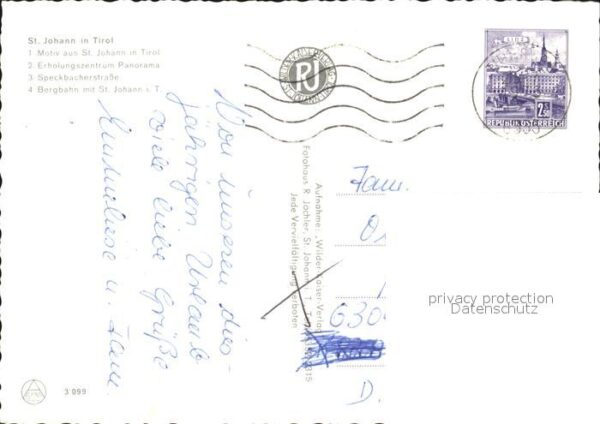 St. Johann in Tirol
1 Motiv aus St. Johann in Tirol
2 Erholungszentrum Panorama
3 Speckbacherstraße
4 Bergbahn mit St. Johann i. T.
RJ
2.50
REPUBLIK ÖSTERREICH
Von unseren dies-
jährigen Urlaub
viele liebe Grüße
u. Fam.
Aufnahme: „Wilder-Kaiser-Verlag"
Fotohaus R. Jöchler, St. Johann
Jede Vervielfältigung verboten
Fam.
630
D.
privacy protection
Datenschutz
3 099